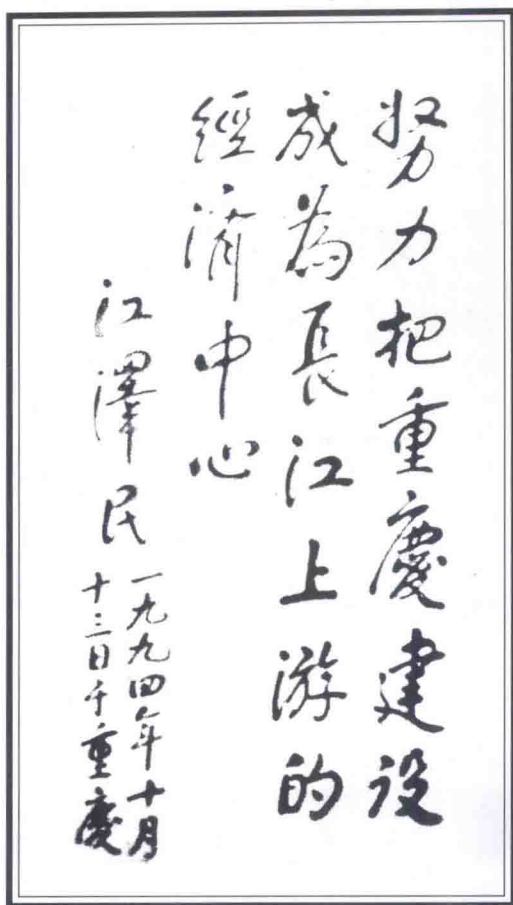 努力把重慶建设
成為長江上游的
經濟中心
江澤民
一九九四年十月
十三日于重慶